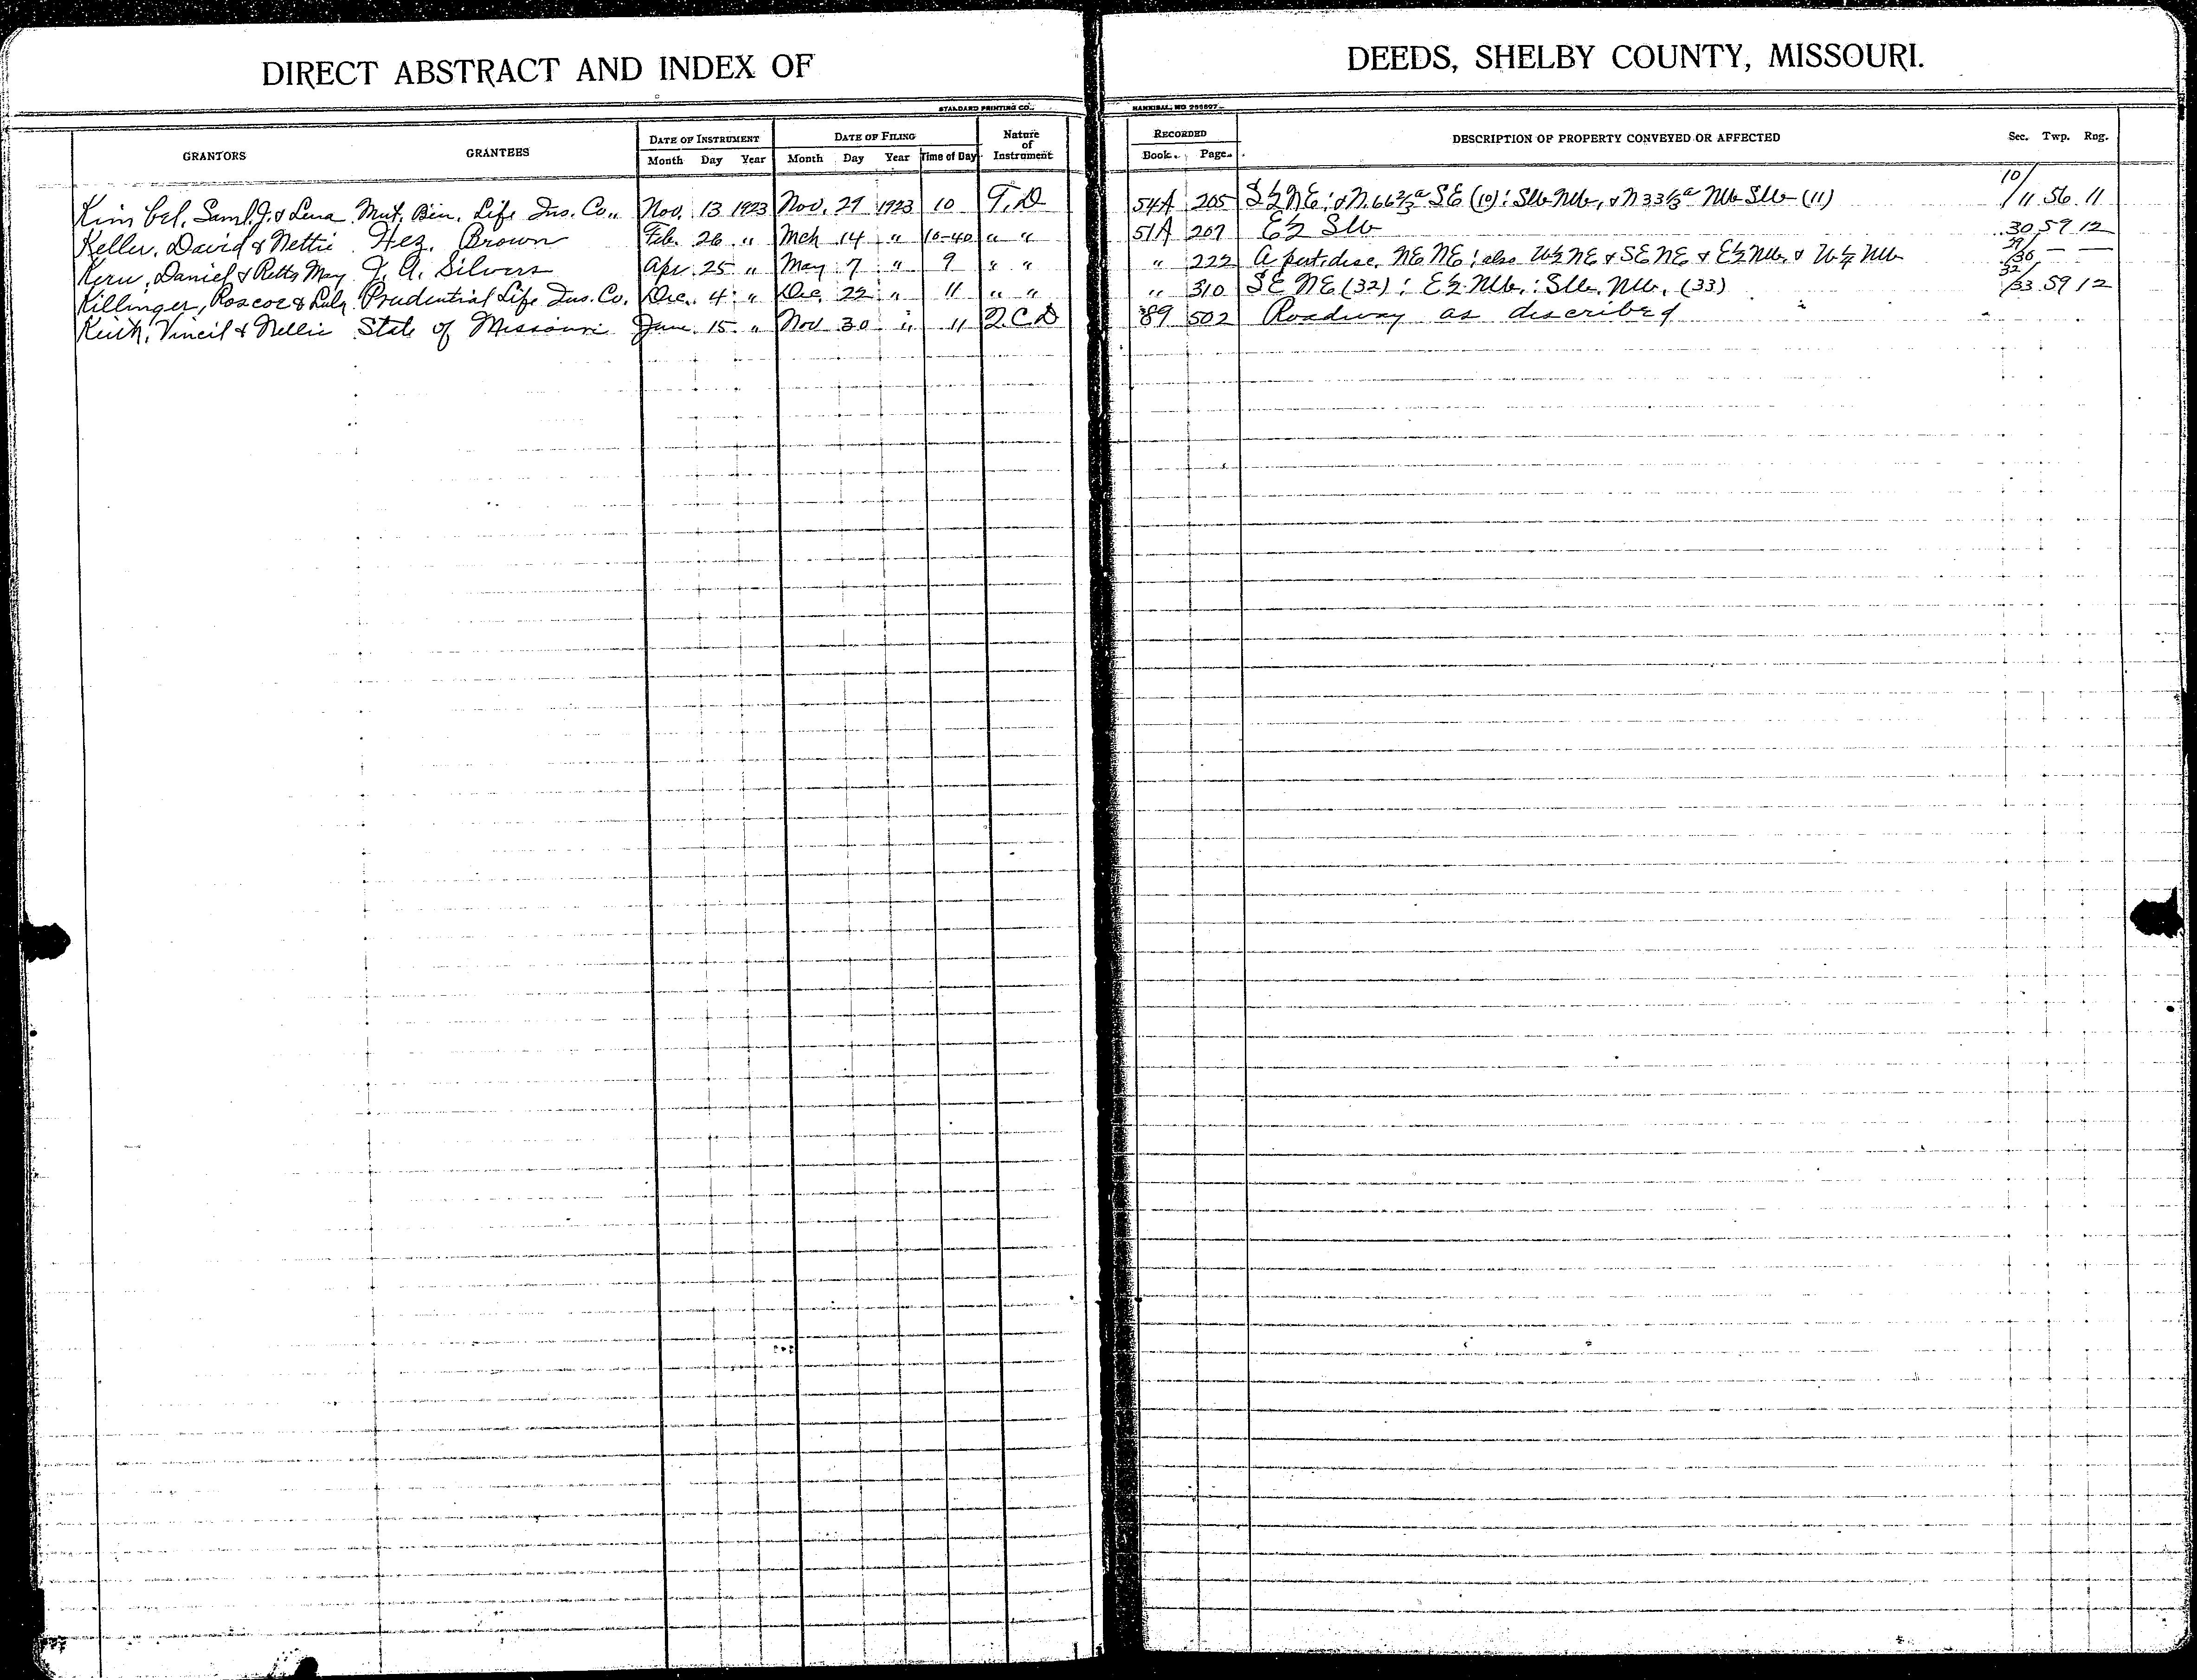 DIRECT ABSTRACT AND INDEX OF DEEDS, SHELBY COUNTY, MISSOURI.
STANDARD PRINTING CO., HANNIBAL, MO
GRANTORS GRANTEES DATE OF INSTRUMENT Month Day Year DATE OF FILING Month Day Year Time of Day Nature of Instrument RECORDED Book Page DESCRIPTION OF PROPERTY CONVEYED OR AFFECTED Sec. Twp. Rng.
Kimbel, Saml. J. & Lena Mut. Ben. Life Ins. Co., Nov. 13 1923 Nov. 27 1923 10 T.D 54A 205 S½NE; & N.66⅔a SE (10); SW NW, & N 33⅓a NW SW (11) 10/11 56 11
Keller, David & Nettie Hez. Brown Feb. 26 " Mch 14 " 10-40 " " 51A 207 E½ SW 30 59 12
Kern, Daniel & Retta May J. A. Silvers Apr. 25 " May 7 " 9 " " " 222 A part. desc. NE NE; also W½ NE & SE NE & E½ NW, & W½ NW /36 — —
Killinger, Roscoe & Lula Prudential Life Ins. Co. Dec. 4 " Dec. 22 " 11 " " " 310 SE NE (32); E½ NW; SW. NW. (33) 32/33 59 12
Keith, Vincil & Nellie State of Missouri June 15 " Nov 30 " 11 Q.C.D 89 502 Roadway as described